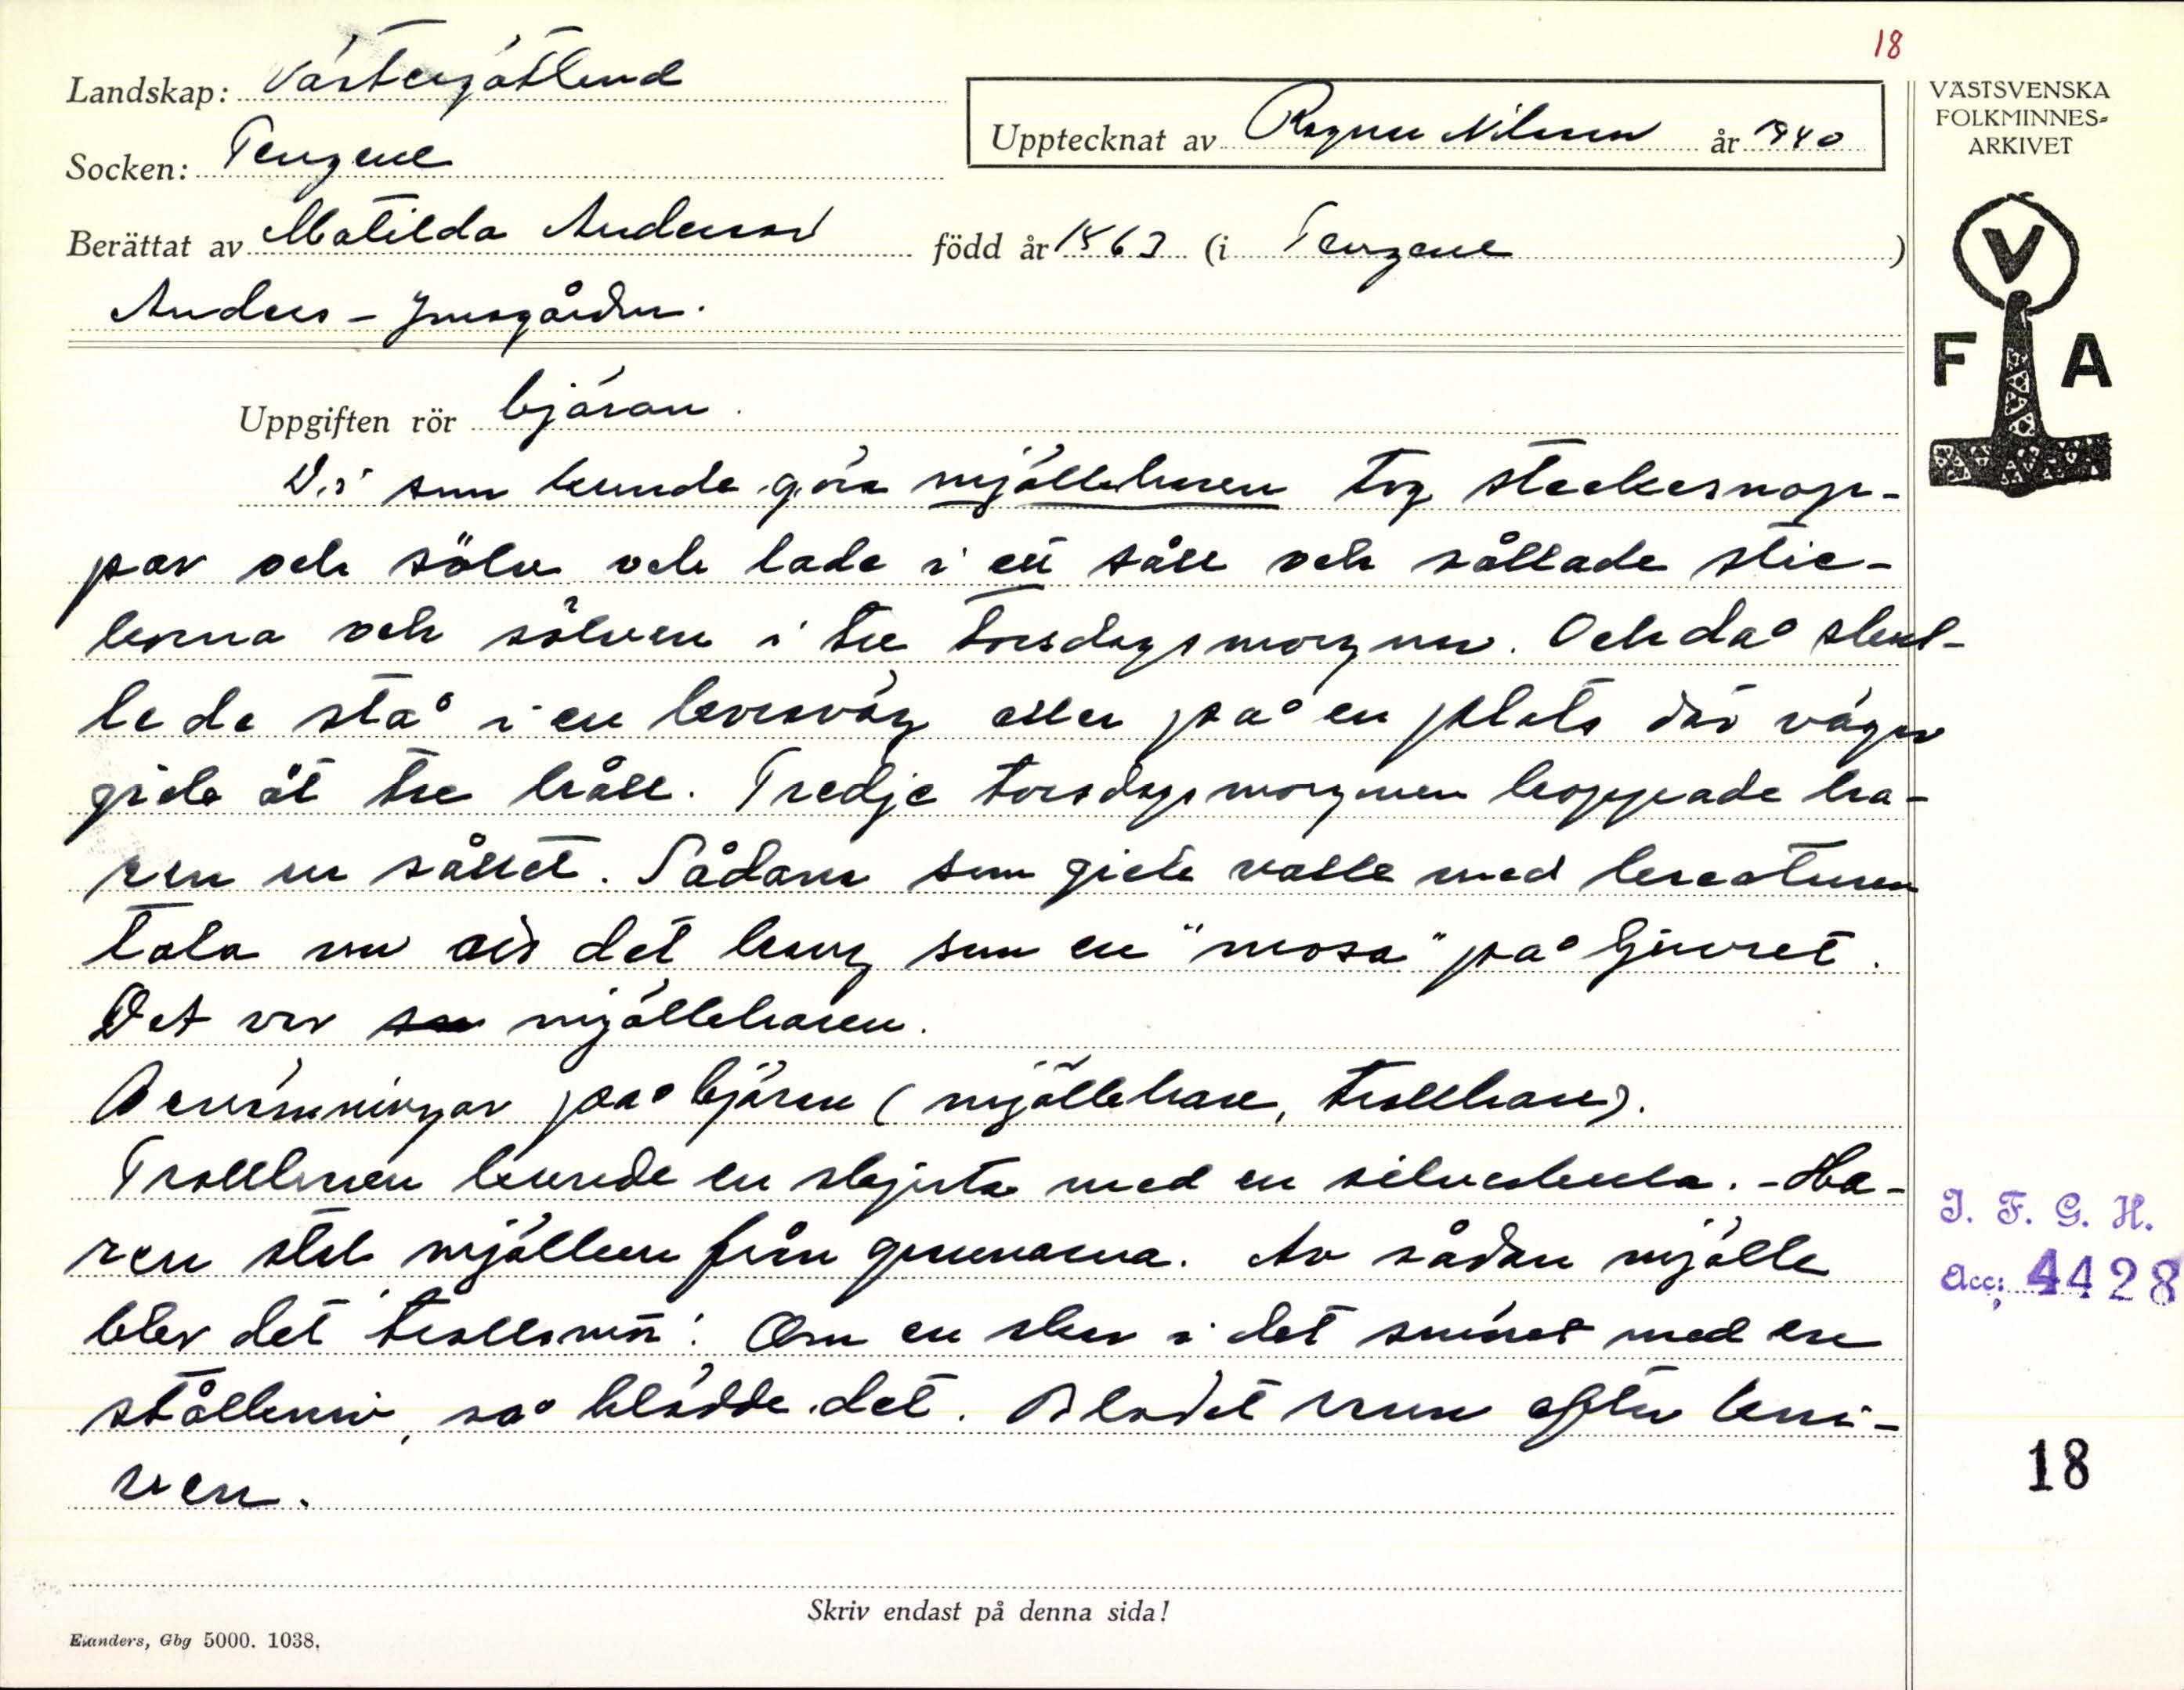 18
Landskap: Västergötland
Upptecknat av Ragnar Nilsson år 1940
VÄSTSVENSKA
FOLKMINNES-
ARKIVET
Socken: Tengene
Berättat av Matilda Andersson född år 1863 (i Tengene)
Anders-Jonsgården.
V
F A
Uppgiften rör bjäran.
De som kunde göra mjölkharen tog stickesnop-
par och sölv och lade i ett såll och sållade stic-
korna och sölven i tre torsdagsmorgnar. Och då skul-
le de stå i en korsväg eller på en plats där vägen
gick åt tre håll. Tredje torsdagsmorgonen hoppade ha-
ren ur sållet. Sådana som gick valle med kreaturen
tala om att det kom som en "mosa" på djuret.
Det var mjölkharen.
Benämningar på bjäran (mjölkhare, trollhare).
Trollharen kunde en skjuta med en silverkula. - Ha-
ren stal mjölken från grannarna. Av sådan mjölk
blev det trollsmör. Om en skar i det smöret med en
stålkniv, så blödde det. Blodet rann efter kni-
ven.
I. F. G. H.
Acc: 4428
18
Skriv endast på denna sida!
Elanders, Gbg 5000. 1038.